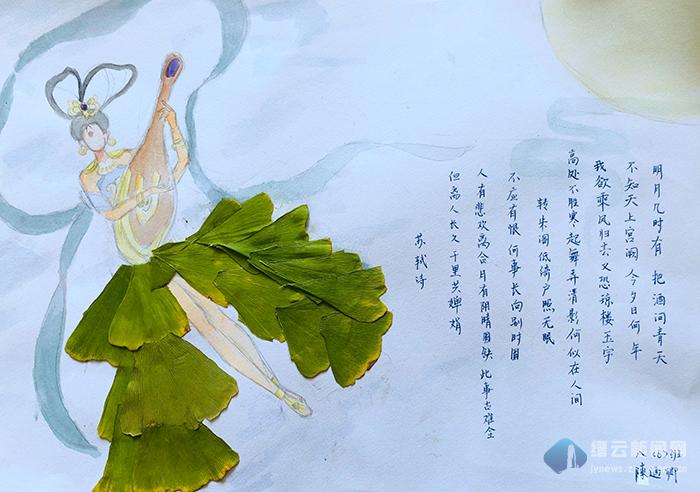 明月几时有 把酒问青天
不知天上宫阙 今夕日何年
我欲乘风归去又恐琼楼玉宇
高处不胜寒起舞弄清影何似在人间
转朱阁低倚户照无眠
不应有恨 何事长向别时圆
人有悲欢离合月有阴晴圆缺 此事古难全
但离人长久千里共婵娟
苏轼诗
八(6)班
缙云新闻网